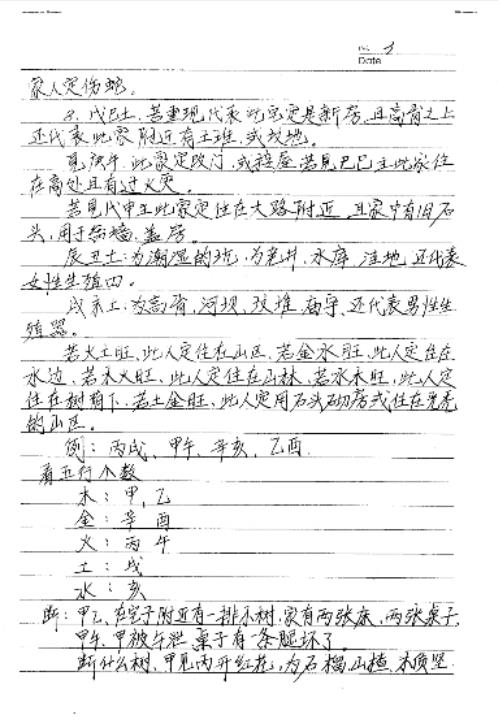 No. 8
Date
家人定伤蛇。
8、戊己土、若重现代表此宅定是新房、且高前之上
还代表此家附近有土堆、或坟地。
见庚午、此家定改门、或接屋、若见己巳主此家住
在高处且有过火灾。
若见戊申主此家定住在大路附近、且家中有旧石
头、用于后墙、盖房。
辰丑土：为潮湿的坑、为老井、水库、洼地、还代表
女性生殖四。
戌未土：为高省、河坝、坟堆、庙宇、还代表男性生
殖器。
若火土旺、此人定住在山区、若金水旺、此人定住在
水边、若木火旺、此人定住在山林、若水木旺、此人定
住在树荫下、若土金旺、此人定用石头砌房或住在光秃
的山区。
例：丙戌、甲午、辛亥、乙酉
看五行个数
木：甲、乙
金：辛 酉
火：丙 午
土：戌
水：亥
断：甲乙、在宅子附近有一排木树、家有两张床、两张桌子、
甲午、甲被午泄、桌子有一条腿坏了
断什么树、甲见丙开红花、为石榴、山楂、木质坚